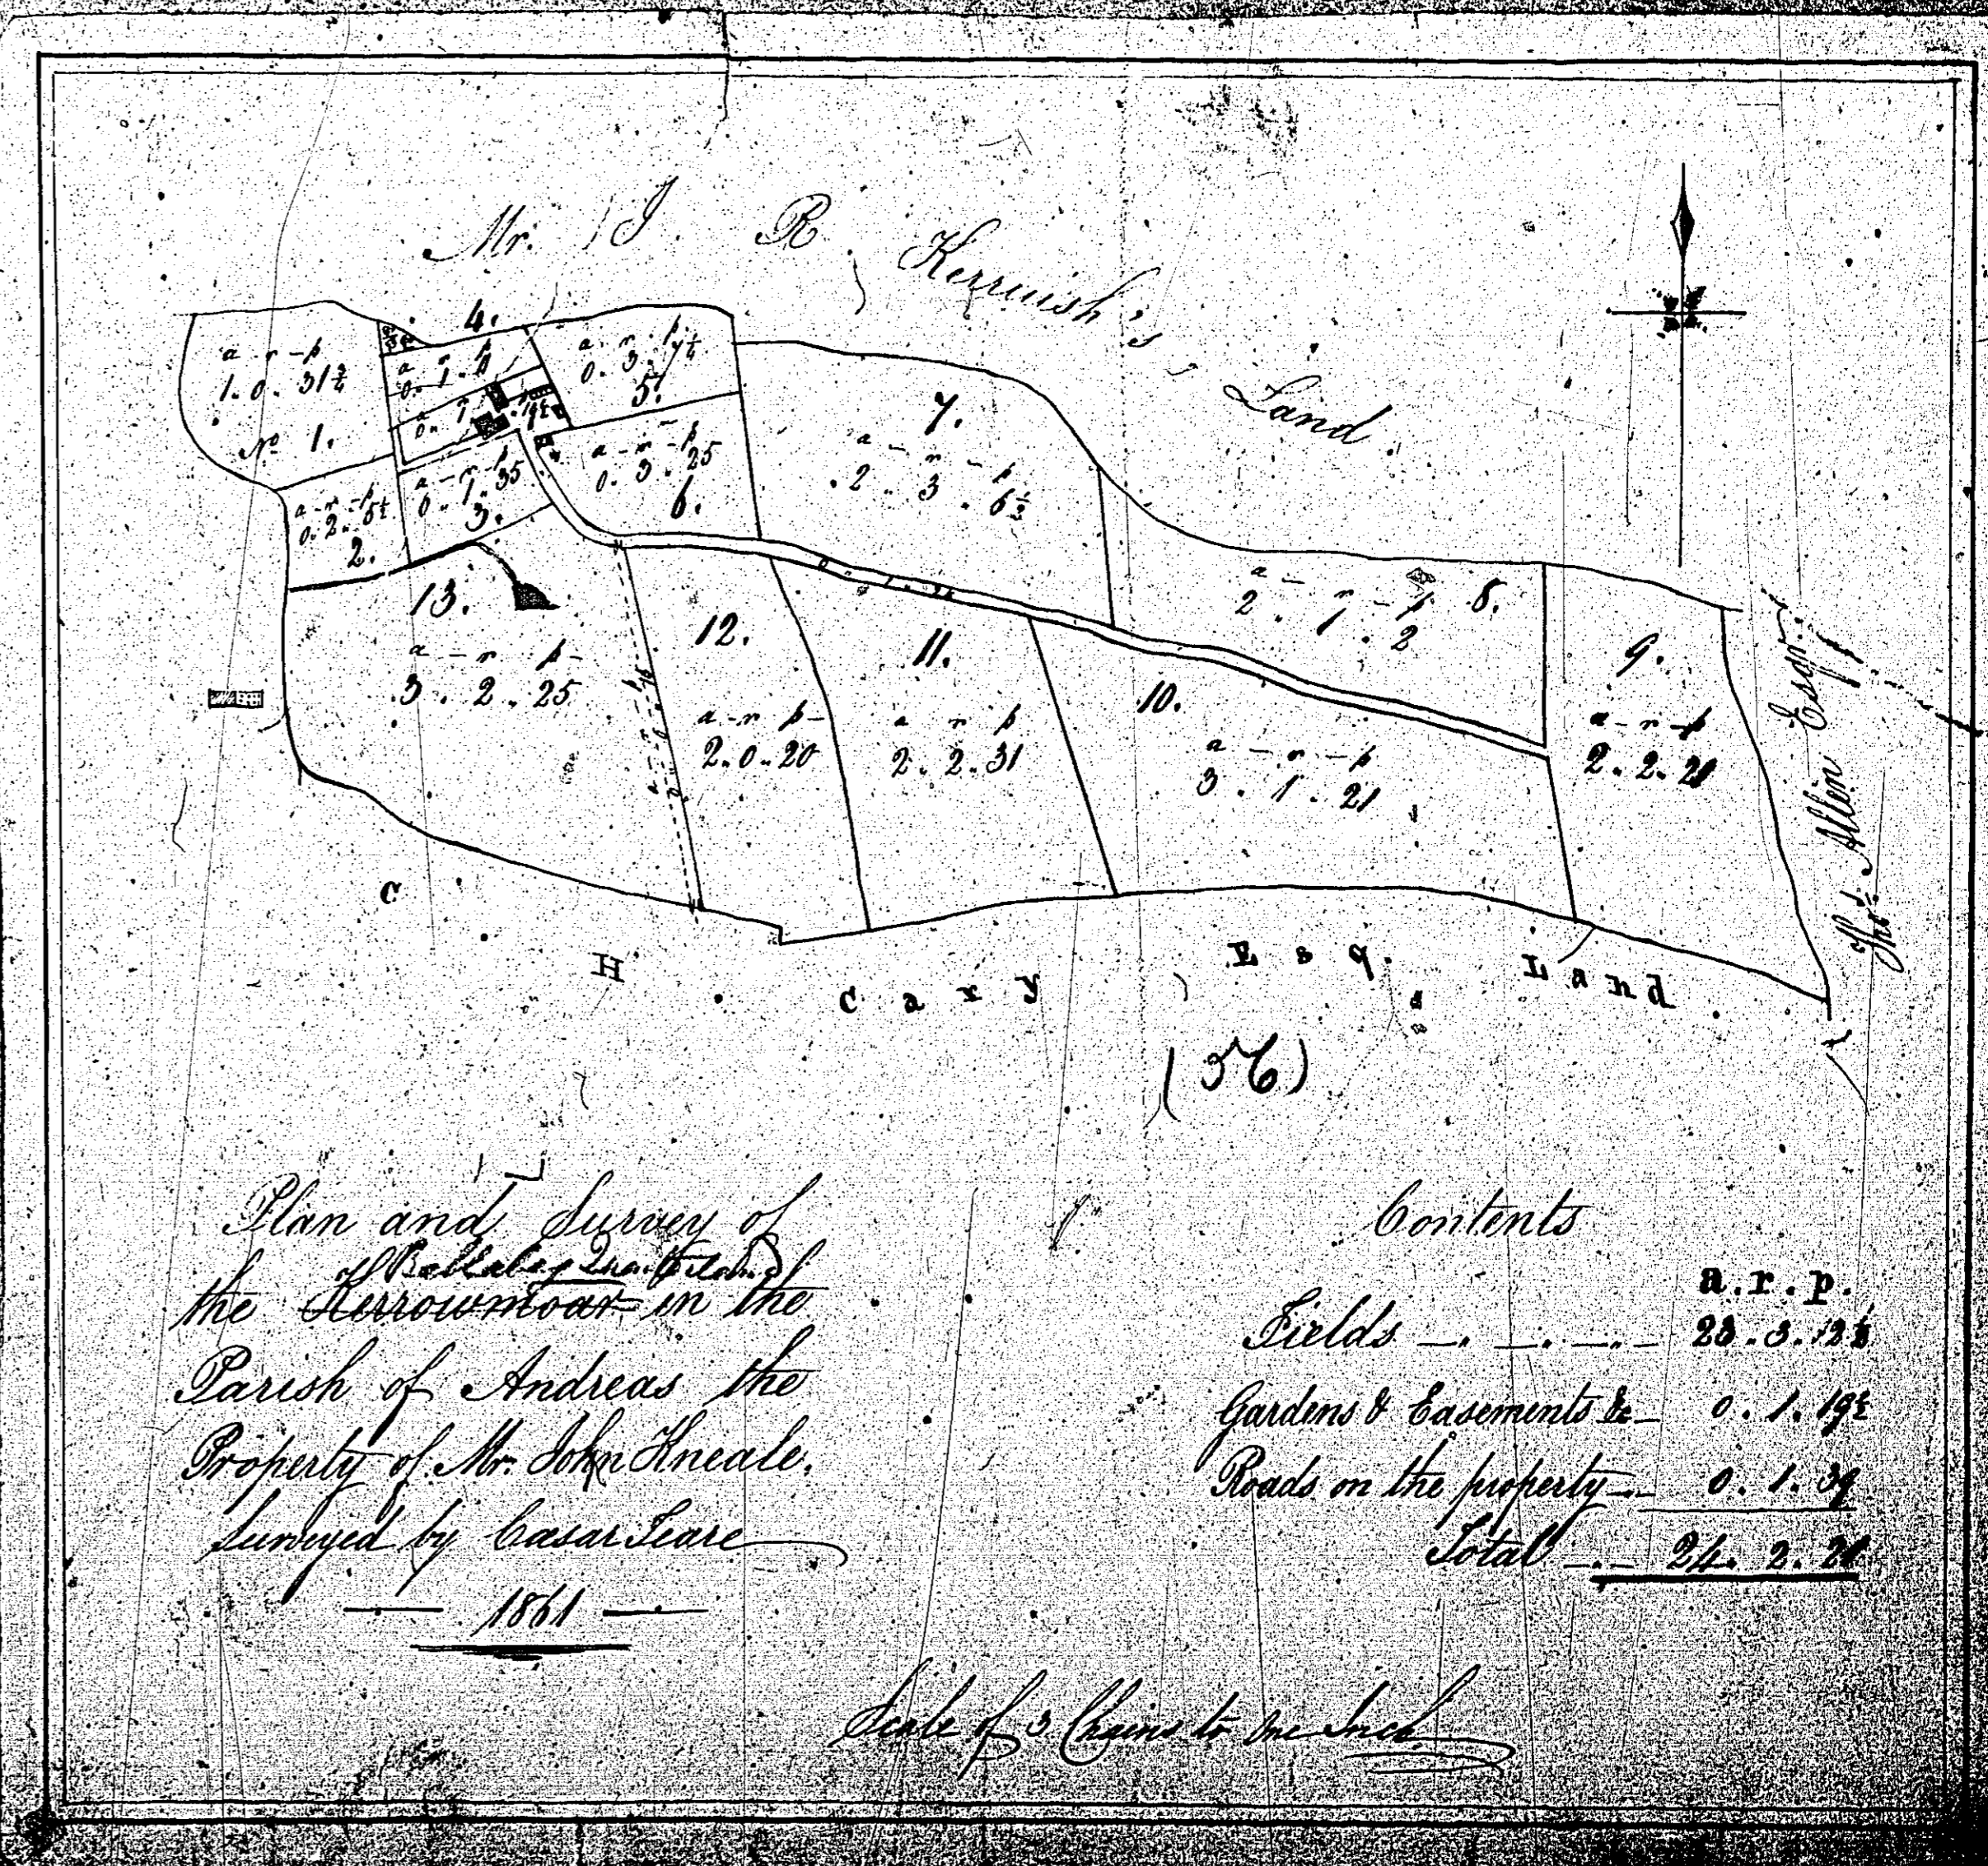 Mr. J. R. Kerruish's Land
4.
a - r - p
1. 0. 31 3/4
No 1.
a - r - p
0. 1.
a - r - p
0. 3. 7 1/4
5.
a - r - p
0. 3. 25
6.
a - r - p
0. 1. 35
3.
a - r - p
0. 2. 5 1/2
2.
7.
a - r - p
2. 3. 6 1/2
a - r - p
2. 1. 2
8.
9.
a - r - p
2. 2. 21
13.
a - r - p
3. 2. 25
12.
a - r - p
2. 0. 20
11.
a r p
2. 2. 31
10.
a - r - p
3. 1. 21
Thos. Allen Esqr.
C H Cary Esq.s Land
(36)
Plan and Survey of
of
the Kerrowmoar in the
Parish of Andreas the
Property of Mr. John Kneale.
Surveyed by Casar Teare
1861
Contents
a. r. p.
Fields 23. 3. 12 1/2
Gardens & Easements &c 0. 1. 19 1/2
Roads on the property 0. 1. 39
Total 24. 2. 21
Scale of 3 Chains to One Inch